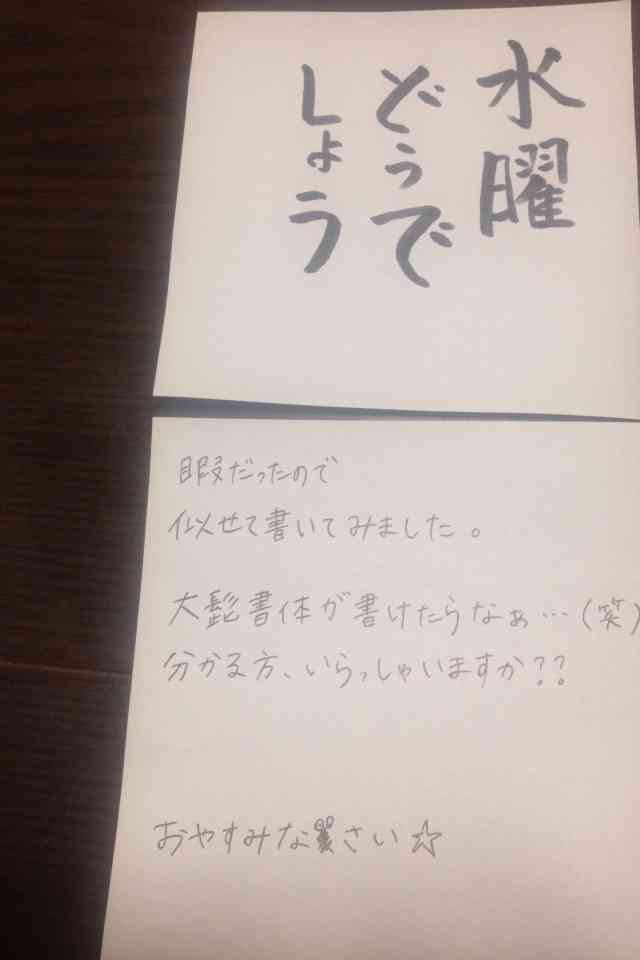 水曜
どうで
しょう
暇だったので
似せて書いてみました。
大髭書体が書けたらなぁ…(笑)
分かる方、いらっしゃいますか??
おやすみなさい☆